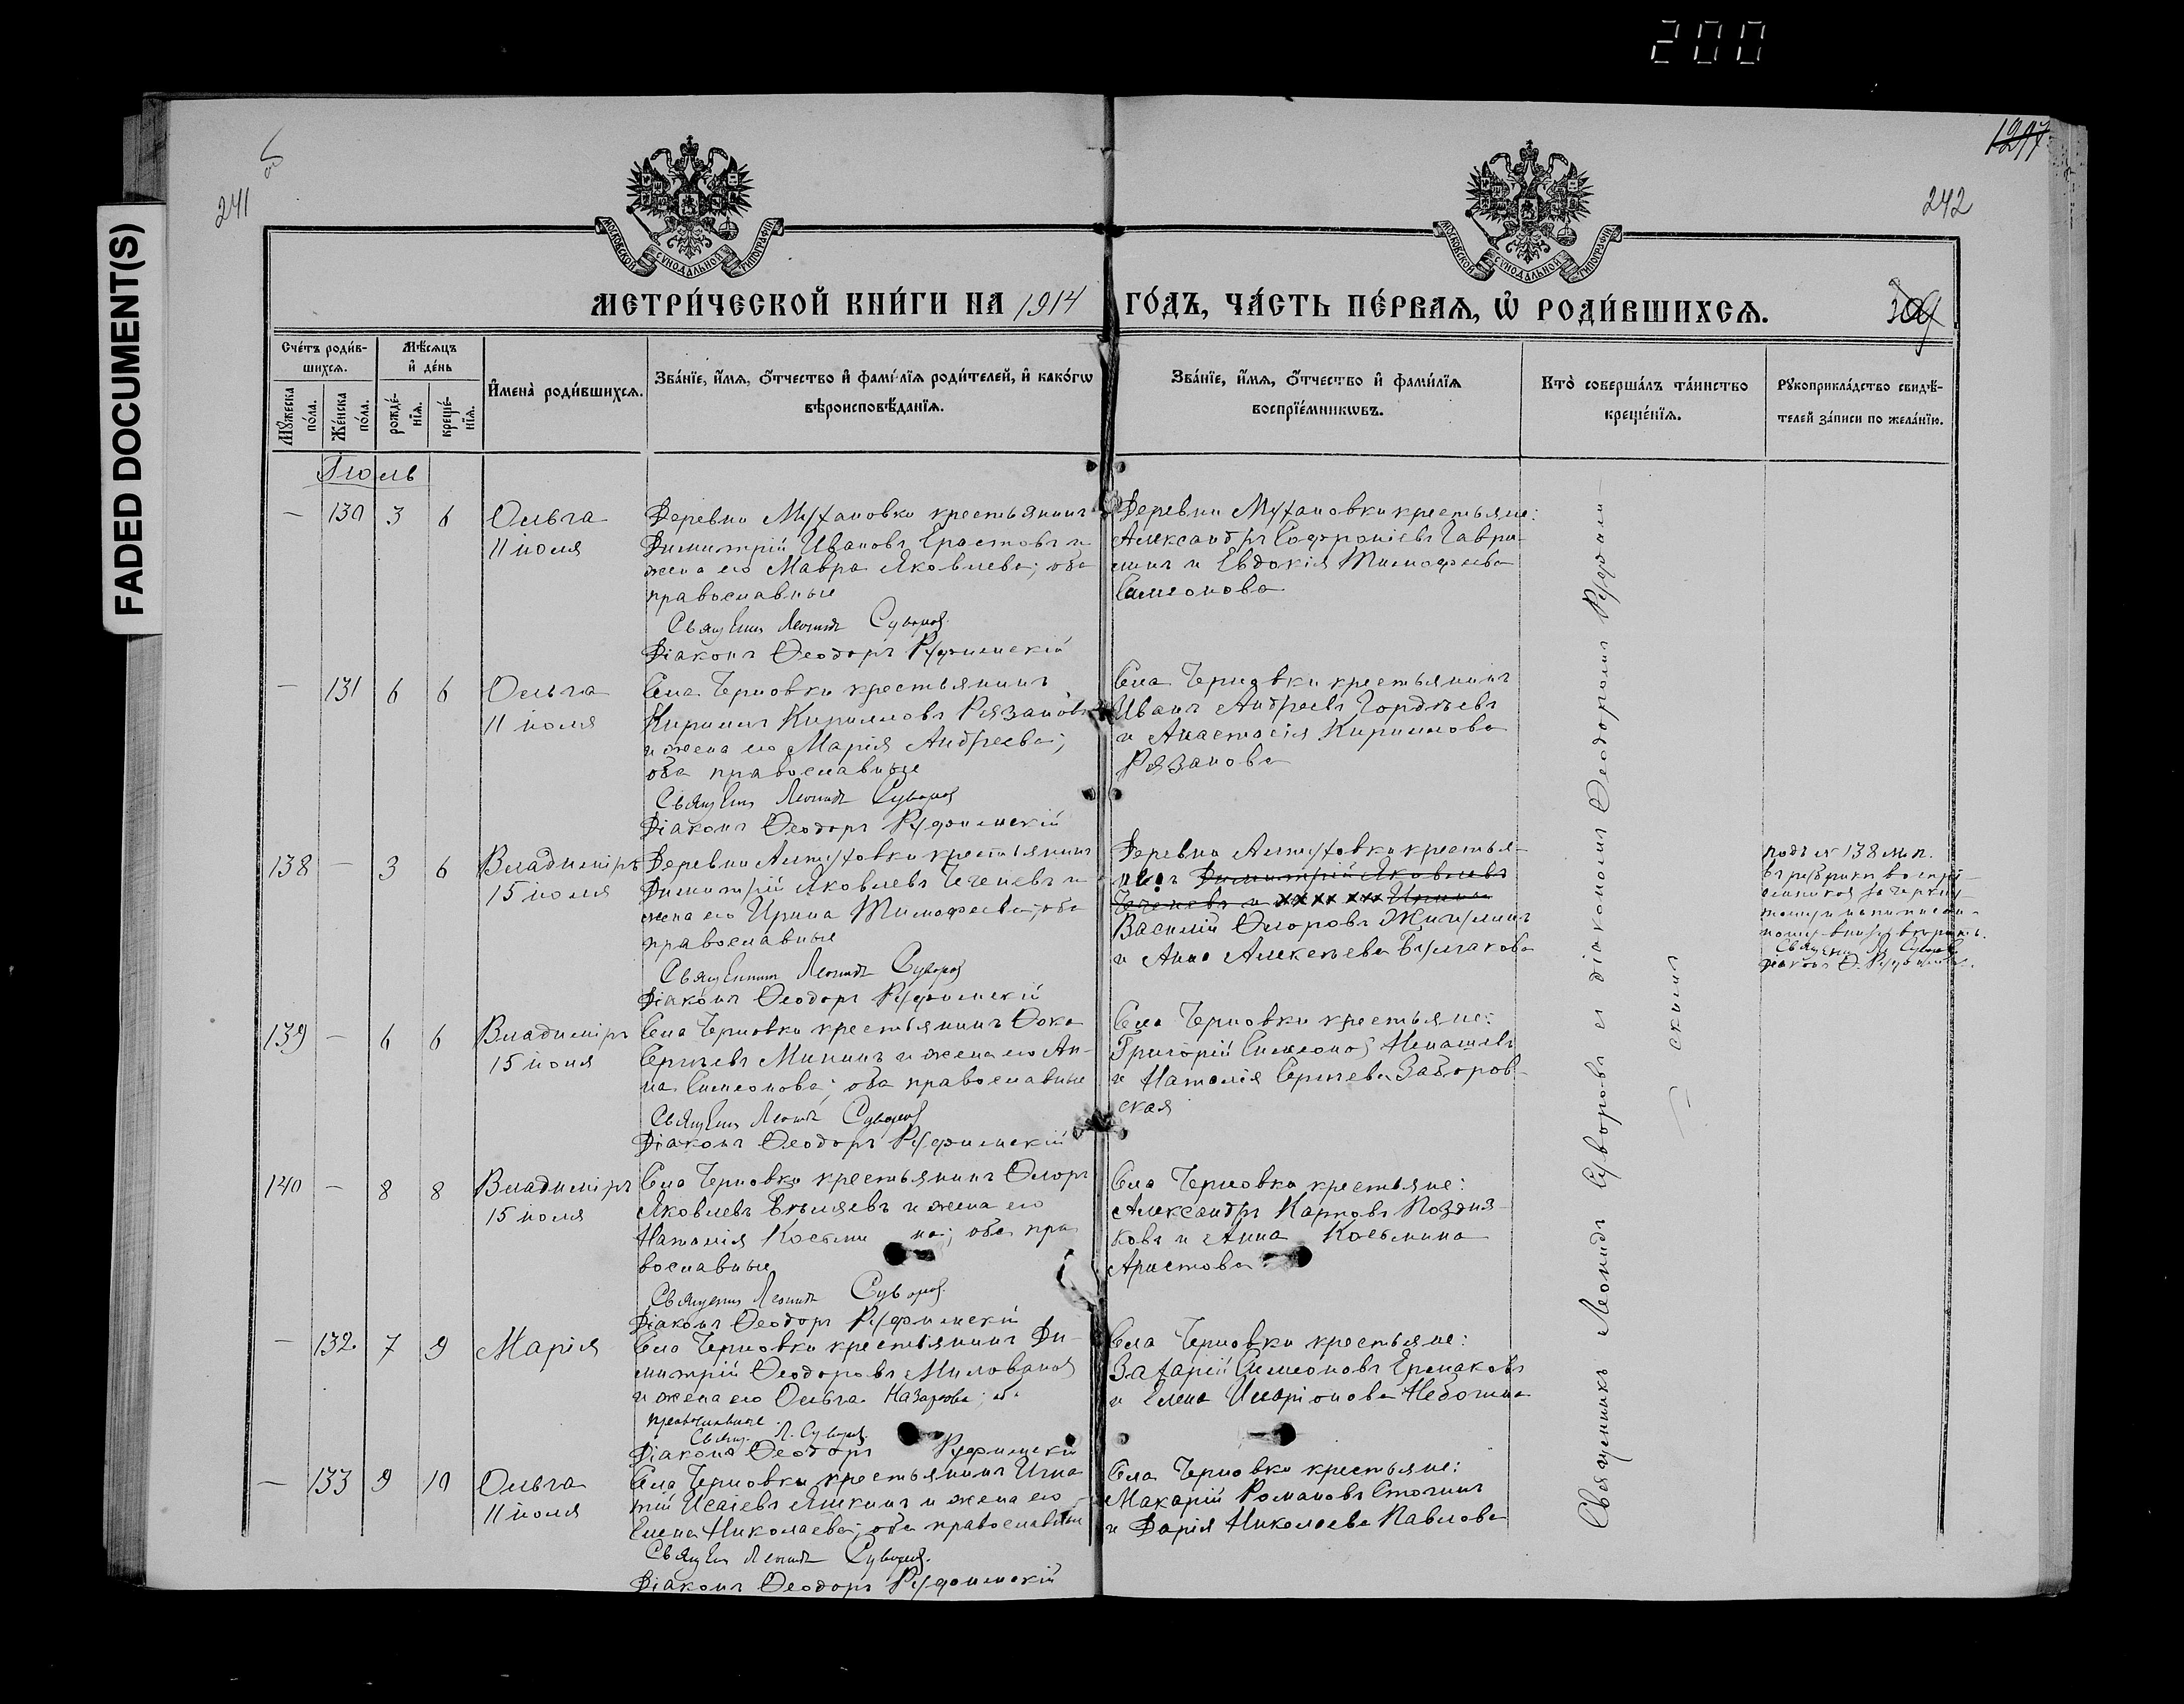 200
FADED DOCUMENT(S)
241
1297
242
МОСКОВСКОЙ СѴНОДАЛЬНОЙ ТИПОГРАФІИ
МОСКОВСКОЙ СѴНОДАЛЬНОЙ ТИПОГРАФІИ
МЕТРИ́ЧЕСКОЙ КНИ́ГИ НА 1914 ГО́ДЪ, ЧА́СТЬ ПЕ́РВАѦ, Ѡ҆ РОДИ́ВШИХСѦ.
309
Сче́тъ роди́в-
шихсѧ.
Мꙋ́жеска
по́ла.
Же́нска
по́ла.
Мѣ́сѧцъ
и҆ де́нь
рожде́-
нїѧ.
креще́-
нїѧ.
И҆мена̀ роди́вшихсѧ.
Зва́нїе, и҆́мѧ, ѻ҆́тчество и҆ фамі́лїѧ роди́телей, и҆ како́гѡ
вѣроисповѣ́данїѧ.
Зва́нїе, и҆́мѧ, ѻ҆́тчество и҆ фами́лїѧ
воспрїе́мникѡвъ.
Кто̀ соверша́лъ та́инство
креще́нїѧ.
Рꙋкоприкла́дство свидѣ́-
телей за́писи по жела́нїю.
Іюль
— 130 3 6 Ольга
11 іюля
Деревни Мухановки крестьянинъ
Димитрій Ивановъ Ерастовъ и
жена его Мавра Яковлева; оба
православные
Священ Леонидъ Суворовъ
Діаконъ Ѳеодоръ Руфимскій
Деревни Мухановки крестьяне:
Александръ Софроніевъ Гаври-
шинъ и Евдокія Тимофеева
Симеонова
— 131 6 6 Ольга
11 іюля
Села Черновки крестьянинъ
Кириллъ Кирилловъ Рязановъ
и жена его Марія Андреева;
оба православные
Священ Леонидъ Суворовъ
Діаконъ Ѳеодоръ Руфимскій
Села Черновки крестьянинъ
Иванъ Андреевъ Гордѣевъ
и Анастасія Кириллова
Рязанова
138 — 3 6 Владиміръ
15 іюля
Деревни крестьянинъ
Димитрій Яковлевъ и
жена его Ирина Тимофеева; оба
православные
Священникъ Леонидъ Суворовъ
Діаконъ Ѳеодоръ Руфимскій
Деревни крестья-
нинъ Димитрій Яковлевъ
и Ирина
Василій Ѳедоровъ
и Анна Алексѣева Булгакова
подъ № 138 м. п.
въ рубрикѣ
Священ Л. Суворовъ
діаконъ Ѳ. Руфимскій.
139 — 6 6 Владиміръ
15 іюля
Села Черновки крестьянинъ Ѳока
Сергѣевъ Мининъ и жена его Ан-
на Симеонова; оба православные
Священ Леонидъ Суворовъ
Діаконъ Ѳеодоръ Руфимскій
Села Черновки крестьяне:
Григорій Симеоновъ Ненашевъ
и Наталія Сергѣева Заборов-
ская
140 — 8 8 Владиміръ
15 іюля
Села Черновки крестьянинъ Ѳедоръ
Яковлевъ Бѣляевъ и жена его
Наталія Косьми на; оба пра
вославные
Священ Леонидъ Суворовъ
Діаконъ Ѳеодоръ Руфимскій
Села Черновки крестьяне:
Александръ Карповъ Поздня-
ковъ и Анна Косьмина
Аристова
— 132. 7 9 Марія
Села Черновки крестьянинъ Ди-
митрій Ѳеодоровъ Миловановъ
и жена его Ольга Назарова; оба
православные
Свящ. Л. Суворовъ
Діаконъ Ѳеодоръ Руфимскій
Села Черновки крестьяне:
Захарій Симеоновъ Ермаковъ
и Елена Иларіонова
— 133 9 10 Ольга
11 іюля
Села Черновки крестьянинъ Игна
тій Исаіевъ Яшкинъ и жена его
Елена Николаева; оба православные
Священ Леонидъ Суворовъ.
Діаконъ Ѳеодоръ Руфимскій
Села Черновки крестьяне:
Макарій Романовъ
и Дарія Николаева Павлова
Священникъ Леонидъ Суворовъ съ діакономъ Ѳеодоромъ Руфим-
скимъ